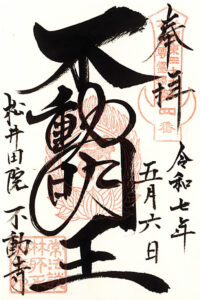 奉拝
令和七年
五月六日
不動明王
松井田院 不動寺